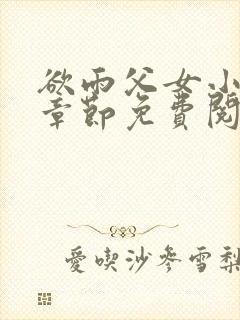 欲雨父女小
章節免費閱
愛喫沙參雪梨